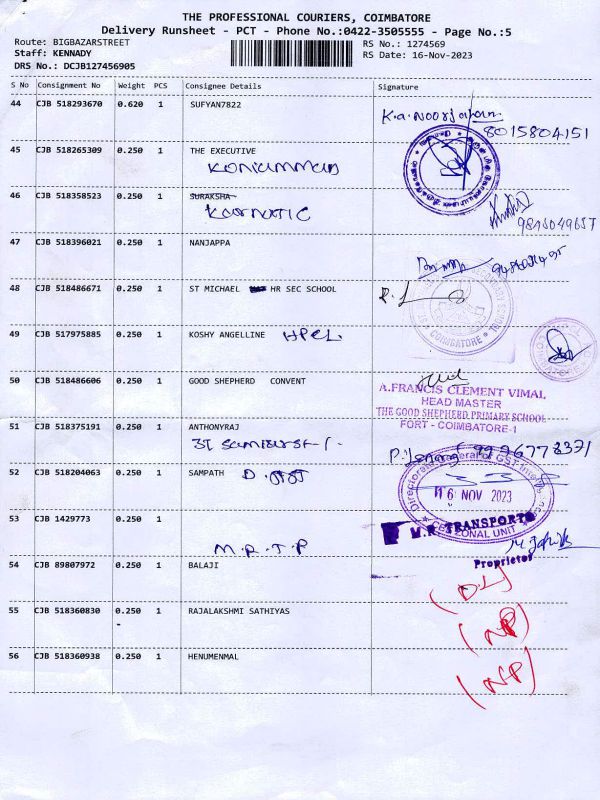 THE PROFESSIONAL COURIERS, COIMBATORE
Delivery Runsheet - PCT - Phone No.:0422-3505555 - Page No.:5
Route: BIGBAZARSTREET
RS No.: 1274569
Staff: KENNADY
RS Date: 16-Nov-2023
DRS No.: DCJB127456905
S No Consignment No Weight PCS Consignee Details Signature
44 CJB 518293670 0.620 1 SUFYAN7822
K.a. Noorjahan
8015804151
45 CJB 518265309 0.250 1 THE EXECUTIVE
Koniamman
46 CJB 518358523 0.250 1 SURAKSHA
Karnatic
47 CJB 518396021 0.250 1 NANJAPPA
48 CJB 518486671 0.250 1 ST MICHAEL HR SEC SCHOOL
COIMBATORE
49 CJB 517975885 0.250 1 KOSHY ANGELLINE HPCL
50 CJB 518486606 0.250 1 GOOD SHEPHERD CONVENT
A.FRANCIS CLEMENT VIMAL
HEAD MASTER
THE GOOD SHEPHERD PRIMARY SCHOOL
FORT - COIMBATORE-1
51 CJB 518375191 0.250 1 ANTHONYRAJ
52 CJB 518204063 0.250 1 SAMPATH
Directorate General of GST
16 NOV 2023
ZONAL UNIT
53 CJB 1429773 0.250 1
M.R.T.P
M.R. TRANSPORTS
Proprietor
54 CJB 89807972 0.250 1 BALAJI
(DL)
55 CJB 518360830 0.250 1 RAJALAKSHMI SATHIYAS
-
(NP)
56 CJB 518360938 0.250 1 HENUMENMAL
(NP)